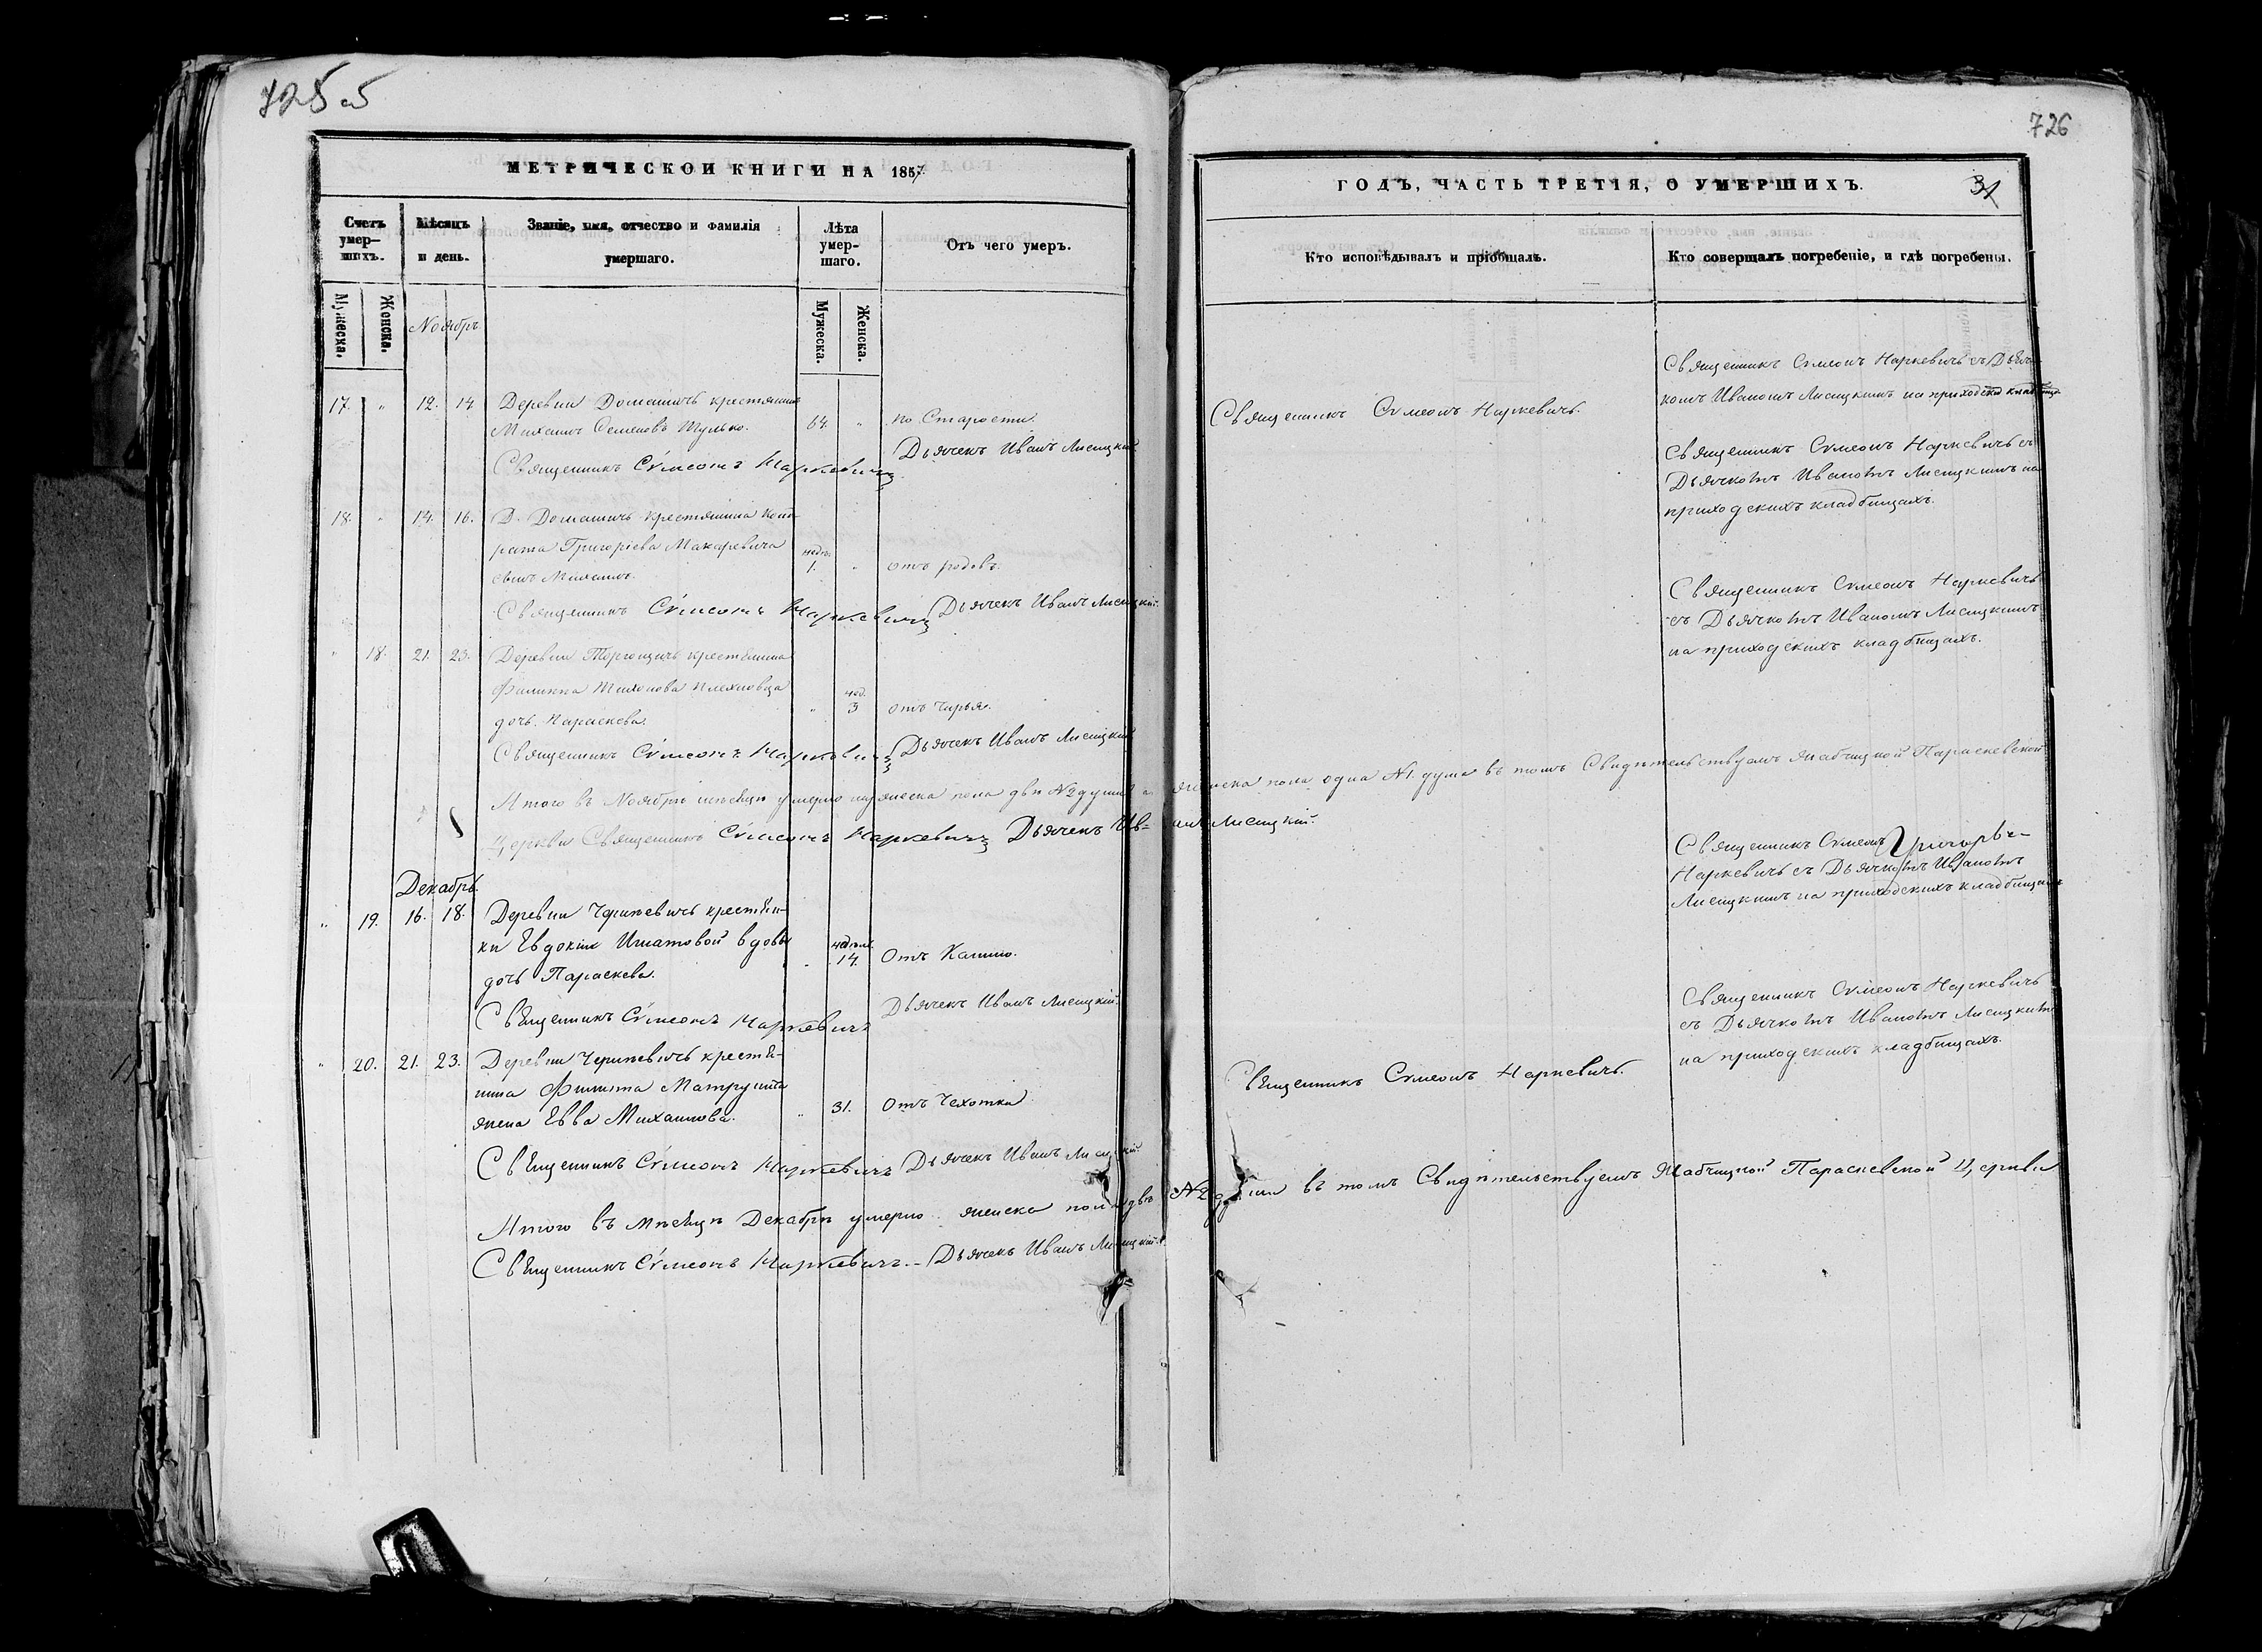 725 об
МЕТРИЧЕСКОЙ КНИГИ НА 1857
Счетъ умер-шихъ.
Мѣсяцъ и день.
Званіе, имя, отчество и фамилія умершаго.
Лѣта умер-шаго.
Отъ чего умеръ.
Мужеска.
Женска.
Ноябрь
Мужеска.
Женска.
17. " 12. 14 Деревни Домашичь крестянинъ
Михаилъ Семеновъ Шулько. 64. " по Старости.
Священникъ Сѵмеонъ Наркевичъ Дьячекъ Иванъ Лисицкій
18. " 14. 16. Д. Домашичь крестянина Конд
рата Григоріева Макаревича
сынъ Михаилъ. недѣ. 1. " отъ родовъ.
Священникъ Сѵмеонъ Наркевичъ Дьячекъ Иванъ Лисицкій.
" 18. 21. 23. Деревни крестянина
Филиппа Тихонова
дочь Параскева. " нед. 3 отъ чирья.
Священникъ Сѵмеонъ Наркевичъ Дьячекъ Иванъ Лисицкій
Итого въ Ноябрѣ мѣсяцѣ умерло мужеска пола двѣ №2 души а женска пола одна №1. душа въ томъ Свидѣтельствуемъ Жабчицкой Параскевской
Церкви Священникъ Сѵмеонъ Наркевичъ Дьячекъ Иванъ Лисицкій.
Декабрь.
" 19. 16. 18. Деревни Черневичь крестян-
ки Евдокіи Игнатовой вдовы
дочь Параскева. " недѣль. 14. Отъ Кашлю.
Священникъ Сѵмеонъ Наркевичъ Дьячекъ Иванъ Лисицкій.
" 20. 21. 23. Деревни Черневичь крестя-
нина Филиппа
жена Евва Михаилова. " 31. Отъ Чехотки
Священникъ Сѵмеонъ Наркевичъ Дьячекъ Иванъ Лисицкій
Итого въ мѣсяцѣ Декабрѣ умерло женска пола двѣ №2 души въ томъ Свидѣтельствуемъ Жабчицкой Параскевской Церкви
Священникъ Сѵмеонъ Наркевичъ. Дьячекъ Иванъ Лисицкій.
726
ГОДЪ, ЧАСТЬ ТРЕТІЯ, О УМЕРШИХЪ.
31
Кто исповѣдывалъ и пріобщалъ.
Кто совершалъ погребеніе, и гдѣ погребены.
Священникъ Сѵмеонъ Наркевичъ съ Дьяч
комъ Иваномъ Лисицкимъ на приходски кладбищ
Священникъ Сѵмеонъ Наркевичъ.
Священникъ Сѵмеонъ Наркевичъ съ
Дьячкомъ Иваномъ Лисицкимъ на
приходскихъ кладбищахъ.
Священникъ Сѵмеонъ Наркевичъ
съ Дьячкомъ Иваномъ Лисицкимъ
на приходскихъ кладбищахъ.
Священникъ Сѵмеонъ
Наркевичъ съ Дьячкомъ Иваномъ
Лисицкимъ на приходскихъ кладбищахъ
Священникъ Сѵмеонъ Наркевичъ
съ Дьячкомъ Иваномъ Лисицкимъ
на приходскихъ кладбищахъ.
Священникъ Сѵмеонъ Наркевичъ.